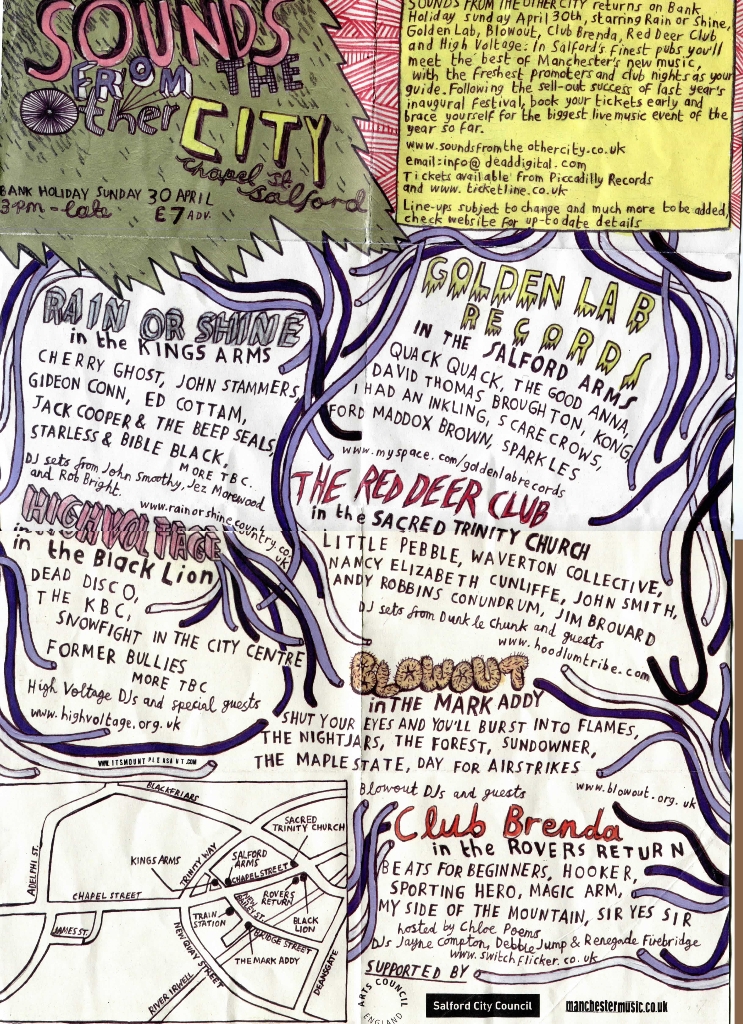 SOUNDS
FROM THE
Other
CITY
chapel St.
Salford
BANK HOLIDAY SUNDAY 30 APRIL
3PM - late £7 ADV.
SOUNDS FROM THE OTHER CITY returns on Bank
Holiday sunday April 30th, starring Rain or Shine,
Golden Lab, Blowout, Club Brenda, Red Deer Club
and High Voltage. In Salford's finest pubs you'll
meet the best of Manchester's new music,
with the freshest promoters and club nights as your
guide. Following the sell-out success of last year's
inaugural festival, book your tickets early and
brace yourself for the biggest live music event of the
year so far.
www.soundsfromtheothercity.co.uk
email: info@deaddigital.com
Tickets available from Piccadilly Records
and www.ticketline.co.uk
Line-ups subject to change and much more to be added,
check website for up-to date details
RAIN OR SHINE
in the KINGS ARMS
CHERRY GHOST, JOHN STAMMERS,
GIDEON CONN, ED COTTAM,
JACK COOPER & THE BEEP SEALS,
STARLESS & BIBLE BLACK,
MORE TBC.
DJ sets from John Smoothy, Jez Morewood
and Rob Bright.
www.rainorshinecountry.co.uk
GOLDEN LAB
RECORDS
IN THE SALFORD ARMS
QUACK QUACK, THE GOOD ANNA,
DAVID THOMAS BROUGHTON, KONG,
I HAD AN INKLING, SCARECROWS,
FORD MADDOX BROWN, SPARKLES
www.myspace.com/goldenlabrecords
HIGH VOLTAGE
in the Black Lion
DEAD DISCO,
THE KBC,
SNOWFIGHT IN THE CITY CENTRE
FORMER BULLIES
MORE TBC
High Voltage DJs and special guests
www.highvoltage.org.uk
WWW.ITSMOUNTPLEASANT.COM
THE RED DEER CLUB
in the SACRED TRINITY CHURCH
LITTLE PEBBLE, WAVERTON COLLECTIVE,
NANCY ELIZABETH CUNLIFFE, JOHN SMITH,
ANDY ROBBINS CONUNDRUM, JIM BROUARD
DJ sets from Dunkle Chunk and guests
www.hoodlumtribe.com
BLOWOUT
in THE MARK ADDY
SHUT YOUR EYES AND YOU'LL BURST INTO FLAMES,
THE NIGHTJARS, THE FOREST, SUNDOWNER,
THE MAPLESTATE, DAY FOR AIRSTRIKES
Blowout DJs and guests www.blowout.org.uk
Club Brenda
in the ROVERS RETURN
BEATS FOR BEGINNERS, HOOKER,
SPORTING HERO, MAGIC ARM,
MY SIDE OF THE MOUNTAIN, SIR YES SIR
hosted by Chloe Poems
DJs Jayne Compton, Debbie Jump & Renegade Firebridge
www.switchflicker.co.uk
BLACKFRIARS
ADELPHI ST.
SACRED
TRINITY CHURCH
TRINITY WAY
SALFORD
ARMS
KINGS ARMS
CHAPEL STREET
CHAPEL STREET
ROVERS
RETURN
NEW
BAILEY ST.
TRAIN
STATION
BLACK
LION
JAMES ST.
BRIDGE STREET
NEW QUAY STREET
THE MARK ADDY
DEANSGATE
RIVER IRWELL
SUPPORTED BY
ARTS COUNCIL
ENGLAND
Salford City Council
manchestermusic.co.uk